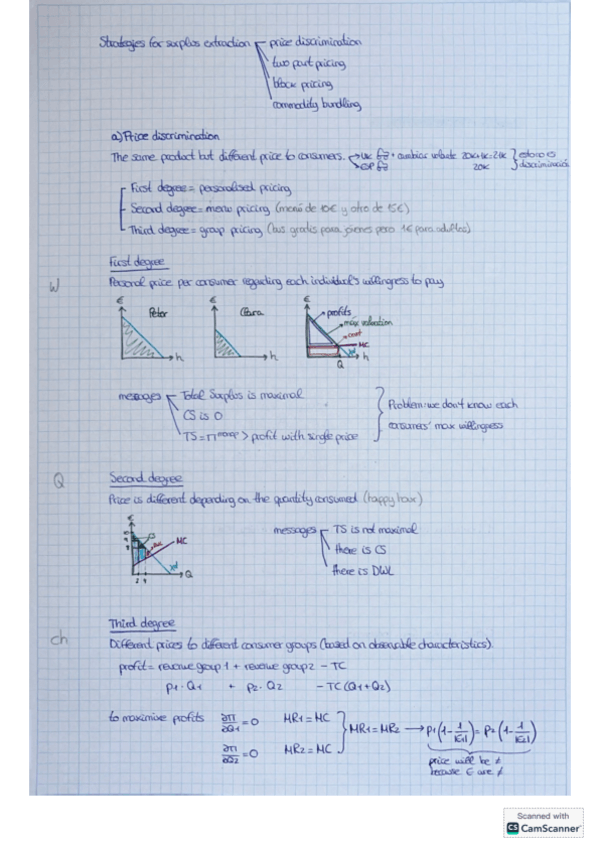 Strategies for surplus extraction
price discrimination
two part pricing
block pricing
commodity bundling
a) Price discrimination
The same product but different price to consumers.
UK
ESP
+ cambiar volante
20K
discriminación
First degree = personalised pricing
Second degree = menu pricing (menú de 10€ y otro de 15€)
Third degree = group pricing (bus gratis para jóvenes pero 1€ para adultos)
First degree
W
Personal price per consumer regarding each individual's willingness to pay
€ Peter h
€ Clara h
€ profits
max valoration
cost
MC
h
Q
messages
Total Surplus is maximal
CS is 0
TS = Π > profit with single price
Problem: we don't know each
consumers' max willingness
Q
Second degree
Price is different depending on the quantity consumed (happy hour)
€ MC Q
messages
TS is not maximal
there is CS
there is DWL
ch
Third degree
Different prices to different consumer groups (based on observable characteristics).
profit = revenue group 1 + revenue group 2 − TC
P1·Q1 + P2·Q2 − TC(Q1+Q2)
to maximize profits ∂Π/∂Q1 = 0 MR1 = MC
MR1 = MR2 → P1(1 − 1/|E1|) = P2(1 − 1/|E2|)
∂Π/∂Q2 = 0 MR2 = MC
price will be ≠
because E are ≠
Scanned with
CS CamScanner